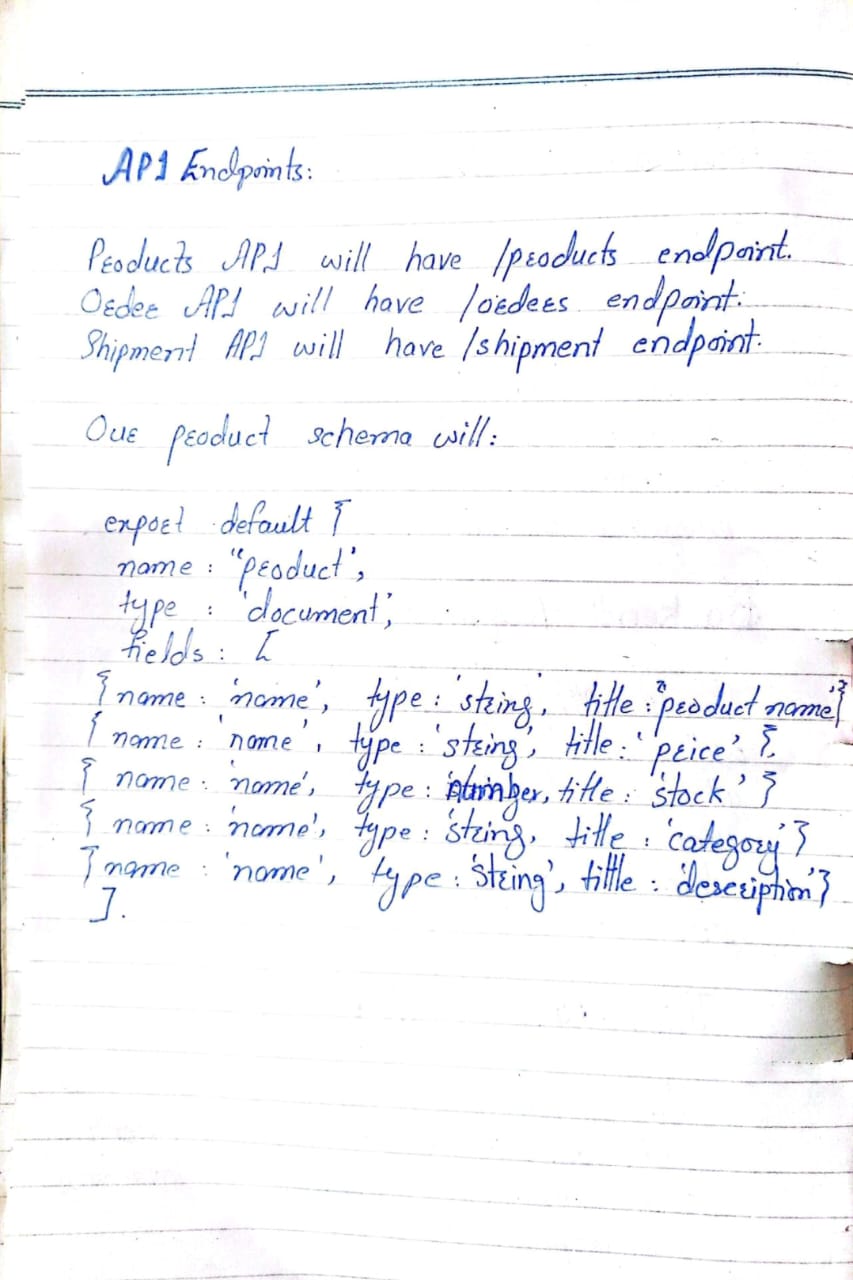 API Endpoints:
Products API will have /products endpoint.
Order API will have /orders endpoint.
Shipment API will have /shipment endpoint.
Our product schema will:
export default {
name : "product',
type : 'document',
fields : [
{ name : 'name', type : 'string', title : "product name'}
{ name : 'name', type : 'string', title : 'price' },
{ name : 'name', type : number, title : 'stock' }
{ name : 'name', type : 'string, title : 'category' }
{ name : 'name', type : 'string', tittle : 'description'}
].